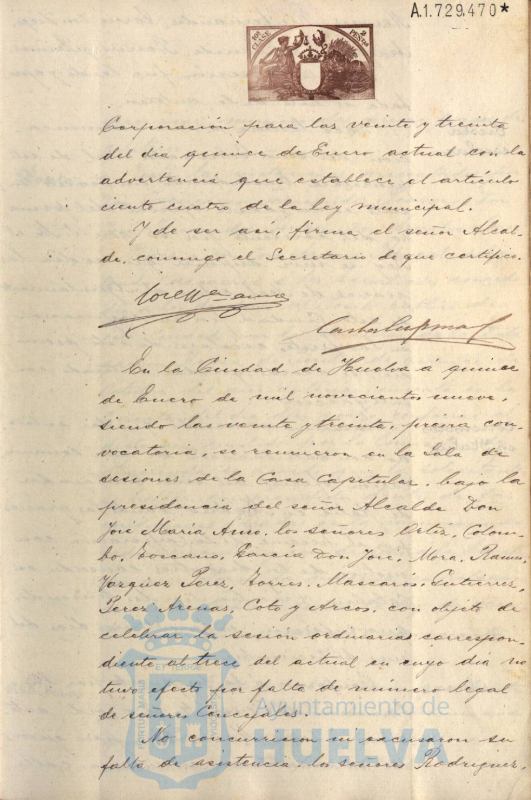 A.1.729.470*
10ª CLASE
2 PESETAS
Corporación para las veinte y treinta
del dia quince de Enero actual con la
advertencia que establece el artículo
ciento cuatro de la ley municipal.
Y de ser así, firma el señor Alcal-
de, conmigo el Secretario de que certifico.
En la Ciudad de Huelva á quince
de Enero de mil novecientos nueve,
siendo las veinte y treinta, previa con-
vocatoria, se reunieron en la Sala de
sesiones de la Casa Capitular, bajo la
presidencia del señor Alcalde Don
José María Amo, los señores Ortiz, Colom-
bo, Toscano, García Don José, Mora, Ramos,
Vázquez Perez, Torres, Mascarós, Gutiérrez,
Perez Arenas, Coto y Arcos, con objeto de
celebrar la sesión ordinaria correspon-
diente al trece del actual en cuyo dia no
tuvo efecto por falta de número legal
de señores Concejales.
No concurrieron ni escusaron su
falta de asistencia, los señores Rodriguez,
Ayuntamiento de
HUELVA